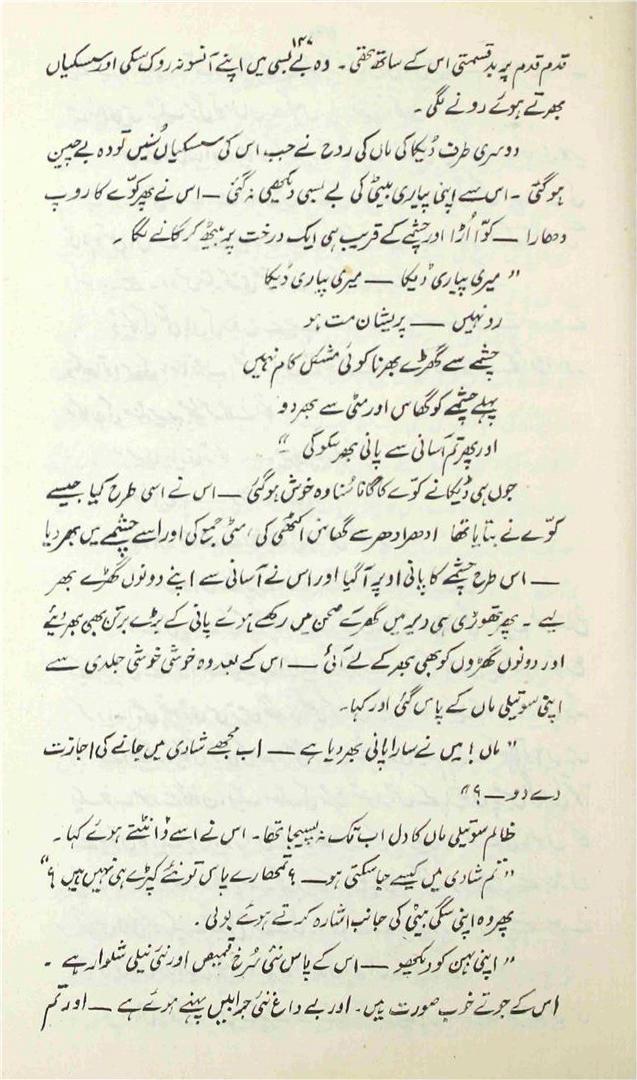 ۱۴۷
قدم قدم پر بدقسمتی اس کے ساتھ تھی۔ وہ بے بسی میں اپنے آنسو نہ روک سکی اور سسکیاں
بھرتے ہوئے رونے لگی۔
دوسری طرف ڈیکا کی ماں کی روح نے جب اس کی سسکیاں سُنیں تو وہ بے چین
ہو گئی۔ اس سے اپنی پیاری بیٹی کی بے بسی دیکھی نہ گئی — اس نے پھر کوّے کا روپ
دھارا — کوّا اُڑا اور چشمے کے قریب ہی ایک درخت پر بیٹھ کر گانے لگا۔
" میری پیاری ڈیکا — میری پیاری ڈیکا
رو نہیں — پریشان مت ہو
چشمے سے گھڑے بھرنا کوئی مشکل کام نہیں
پہلے چشمے کو گھاس اور مٹی سے بھر دو
اور پھر تم آسانی سے پانی بھر سکو گی ۔"
جوں ہی ڈیکا نے کوّے کا گانا سُنا وہ خوش ہو گئی — اس نے اسی طرح کیا جیسے
کوّے نے بتایا تھا ادھر ادھر سے گھاس اکٹھی کی، مٹی جمع کی اور اسے چشمے میں بھر دیا
— اس طرح چشمے کا پانی اوپر آ گیا اور اس نے آسانی سے اپنے دونوں گھڑے بھر
لیے ۔ پھر تھوڑی ہی دیر میں گھر کے صحن میں رکھے ہوئے پانی کے بڑے برتن بھی بھر دیئے
اور دونوں گھڑوں کو بھی بھر کے لے آئی — اس کے بعد وہ خوشی خوشی جلدی سے
اپنی سوتیلی ماں کے پاس گئی اور کہا۔
" ماں ! میں نے سارا پانی بھر دیا ہے — اب مجھے شادی میں جانے کی اجازت
دے دو — ؟"
ظالم سوتیلی ماں کا دل اب تک نہ پسیجا تھا۔ اس نے اسے ڈانٹتے ہوئے کہا۔
" تم شادی میں کیسے جا سکتی ہو — ؟ تمھارے پاس تو نئے کپڑے ہی نہیں ہیں ؟"
پھر وہ اپنی سگی بیٹی کی جانب اشارہ کرتے ہوئے بولی ۔
" اپنی بہن کو دیکھو — اس کے پاس نئی سُرخ قمیص اور نئی نیلی شلوار ہے ۔
اس کے جوتے خوب صورت ہیں۔ اور بے داغ نئی جرابیں پہنے ہوئے ہے — اور تم